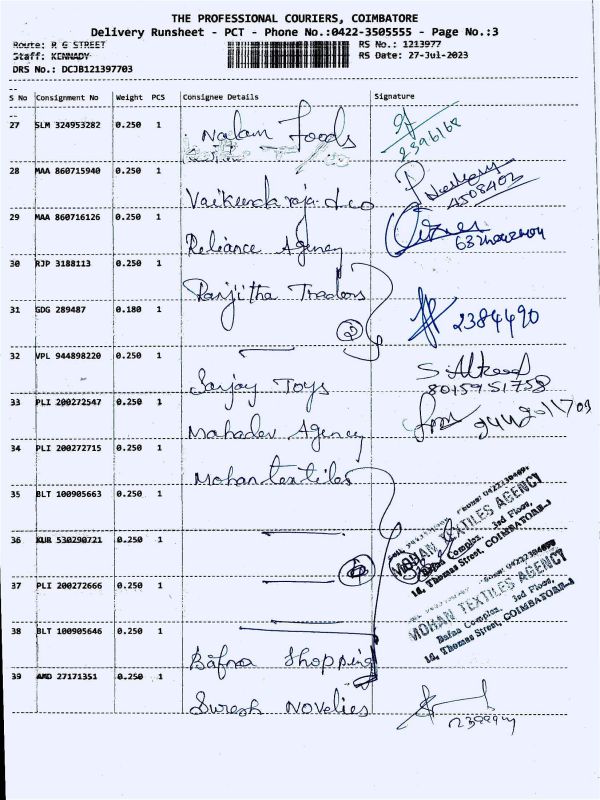 THE PROFESSIONAL COURIERS, COIMBATORE
Delivery Runsheet - PCT - Phone No.:0422-3505555 - Page No.:3
Route: R G STREET RS No.: 1213977
Staff: KENNADY RS Date: 27-Jul-2023
DRS No.: DCJB121397703
S No Consignment No Weight PCS Consignee Details Signature
27 SLM 324953282 0.250 1 Nalam Foods 2396168
28 MAA 860715940 0.250 1 Vaikunda raja & co 4508402
29 MAA 860716126 0.250 1 Reliance Agency
30 RJP 3188113 0.250 1 Ranjitha Traders
31 GDG 289487 0.180 1 2 2384490
32 VPL 944898220 0.250 1 Sanjay Toys 8015951758
33 PLI 200272547 0.250 1 Mahadev Agency
34 PLI 200272715 0.250 1 Mohan textiles
35 BLT 100905663 0.250 1
MOHAN TEXTILES AGENCY
Bafna Complex, 3rd Floor,
18, Thomas Street, COIMBATORE-1
36 KUR 530290721 0.250 1
37 PLI 200272666 0.250 1
MOHAN TEXTILES AGENCY
Bafna Complex, 3rd Floor,
18, Thomas Street, COIMBATORE-1
38 BLT 100905646 0.250 1 Bafna Shopping
39 AMD 27171351 0.250 1 Suresh Novelies